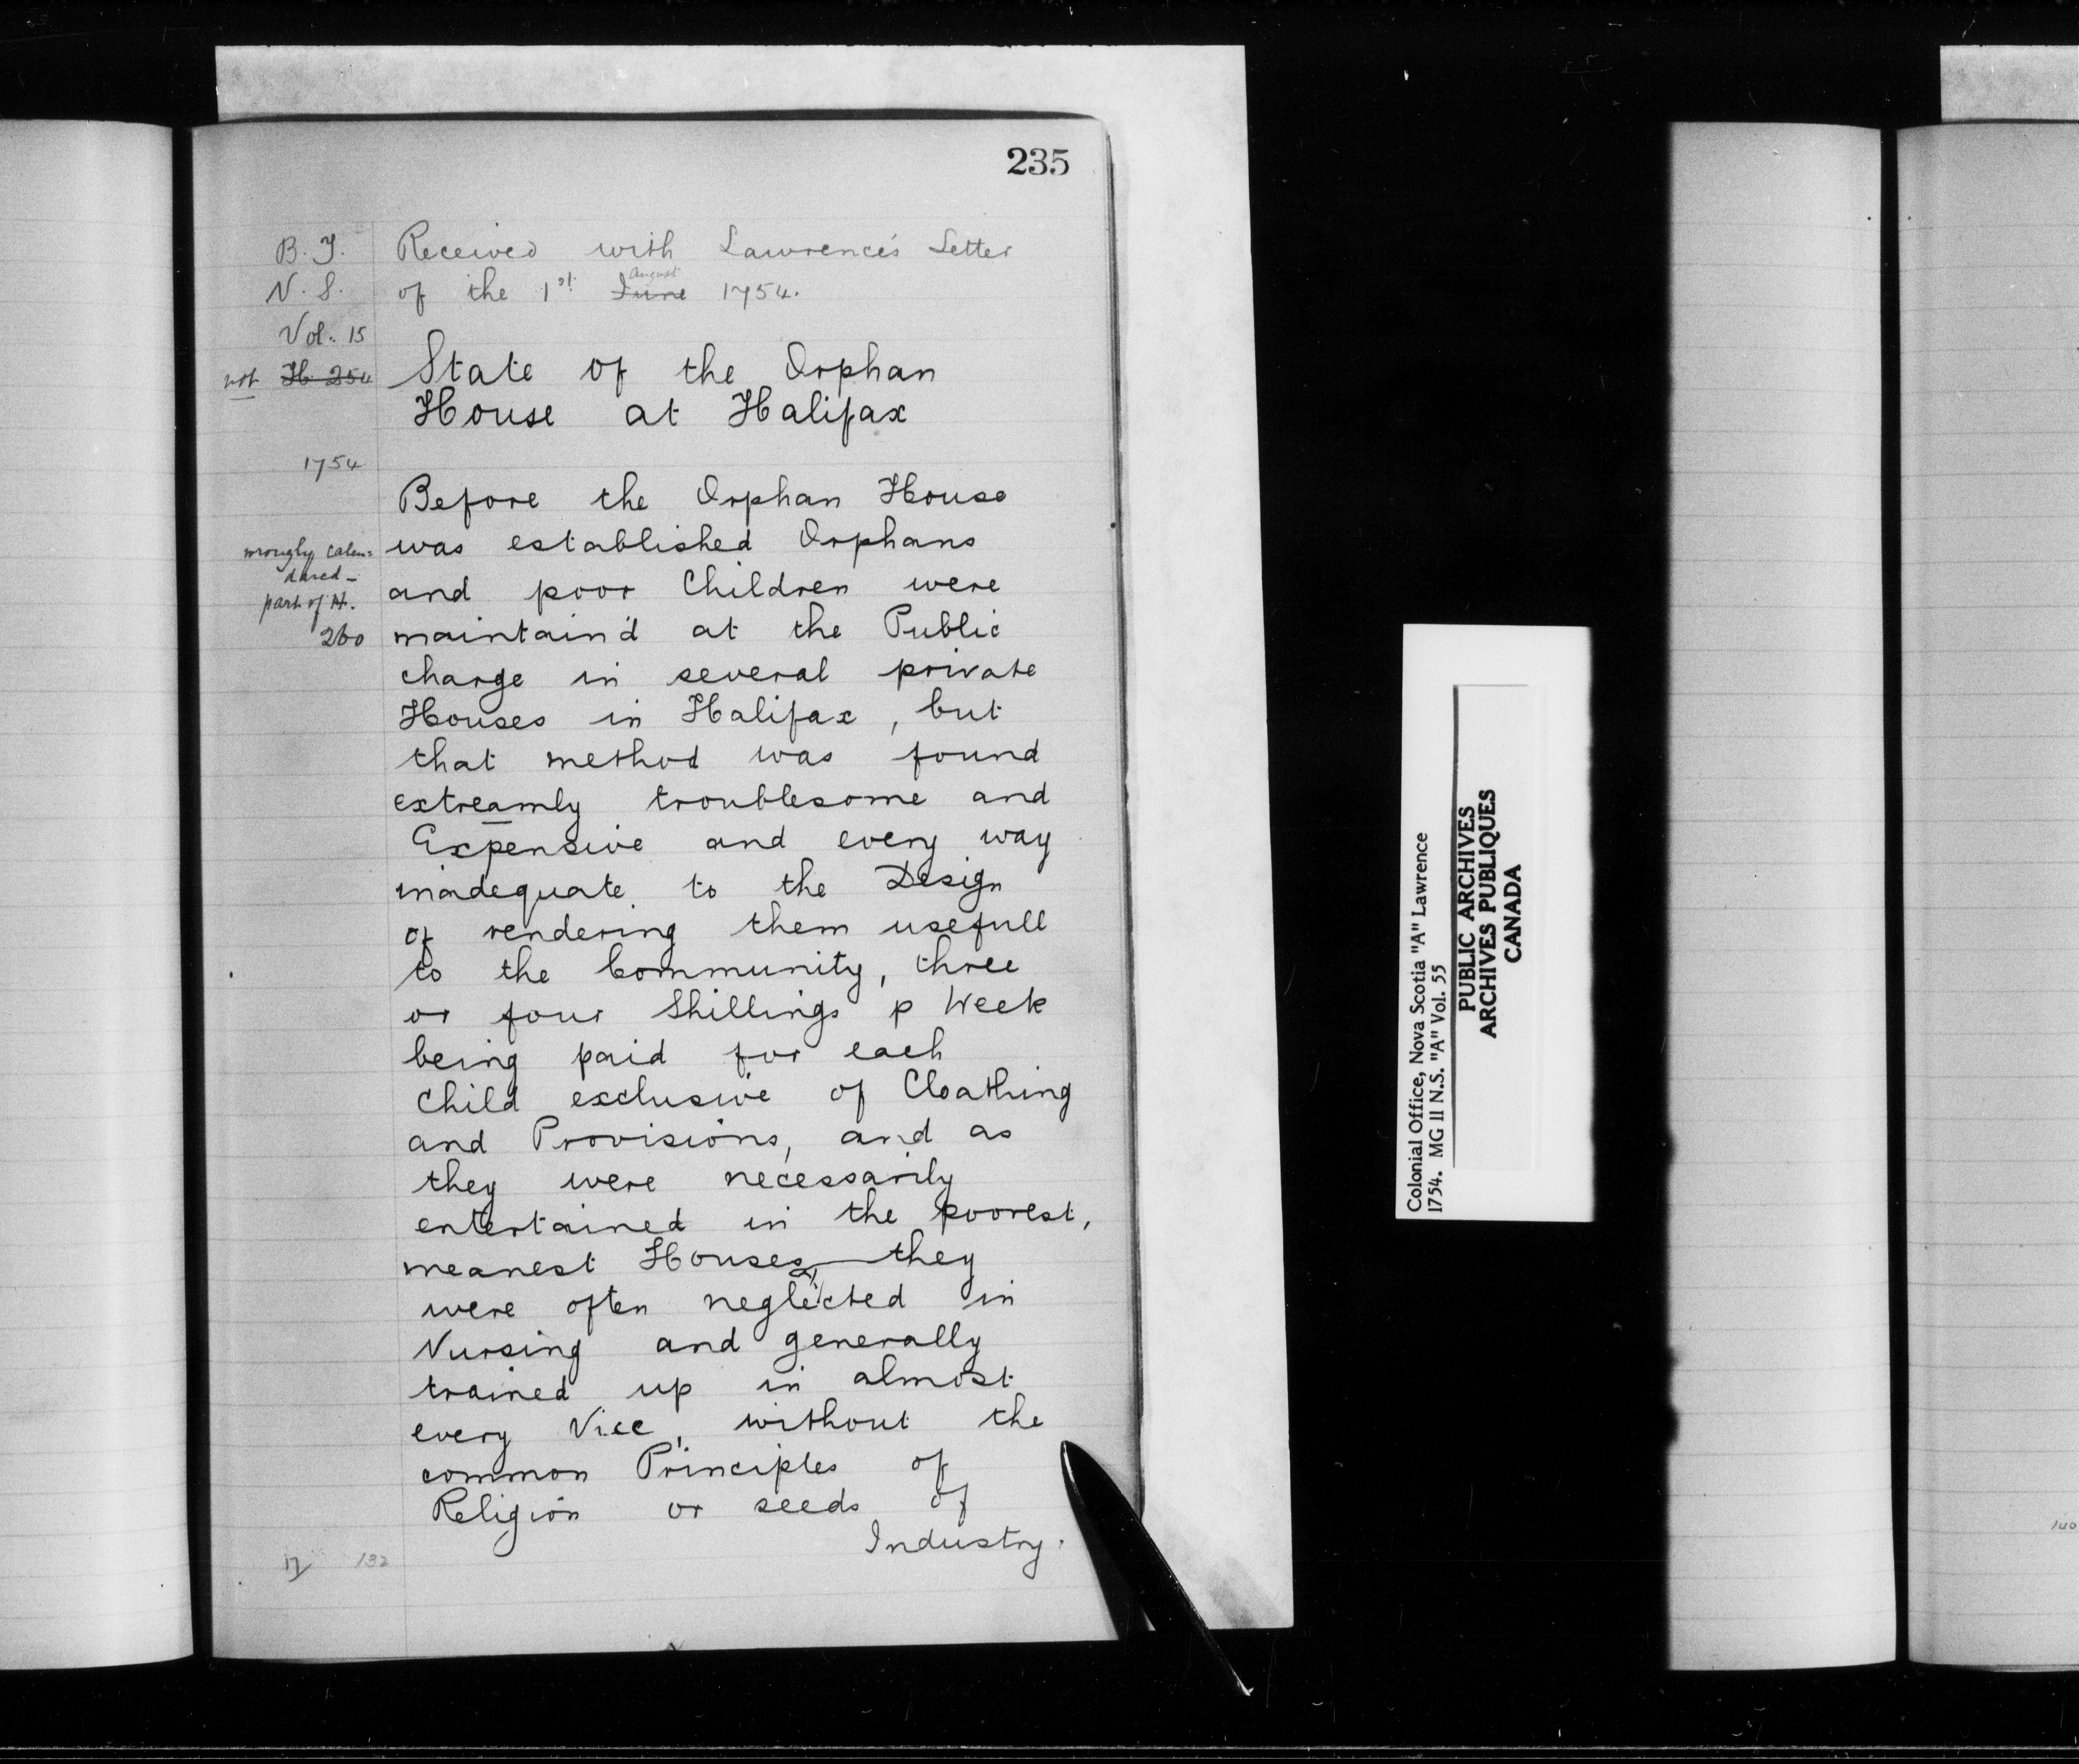 235
B. T.
N. S.
Vol. 15
not H 254
1754
wrongly calen=
dared -
part of H.
260
Received with Lawrence's Letter
of the 1st June August 1754.
State of the Orphan
House at Halifax
Before the Orphan House
was established Orphans
and poor Children were
maintain'd at the Public
charge in several private
Houses in Halifax, but
that method was found
extreamly troublesome and
Expensive and every way
inadequate to the Design
of rendering them usefull
to the Community, three
or four Shillings p Week
being paid for each
Child exclusive of Cloathing
and Provisions, and as
they were necessarily
entertained in the poorest,
meanest Houses, they
were often neglected in
Nursing and generally
trained up in almost
every Vice, without the
common Principles of
Religion or seeds of
Industry.
132
Colonial Office, Nova Scotia "A" Lawrence
1754. MG 11 N.S. "A" Vol. 55
PUBLIC ARCHIVES
ARCHIVES PUBLIQUES
CANADA